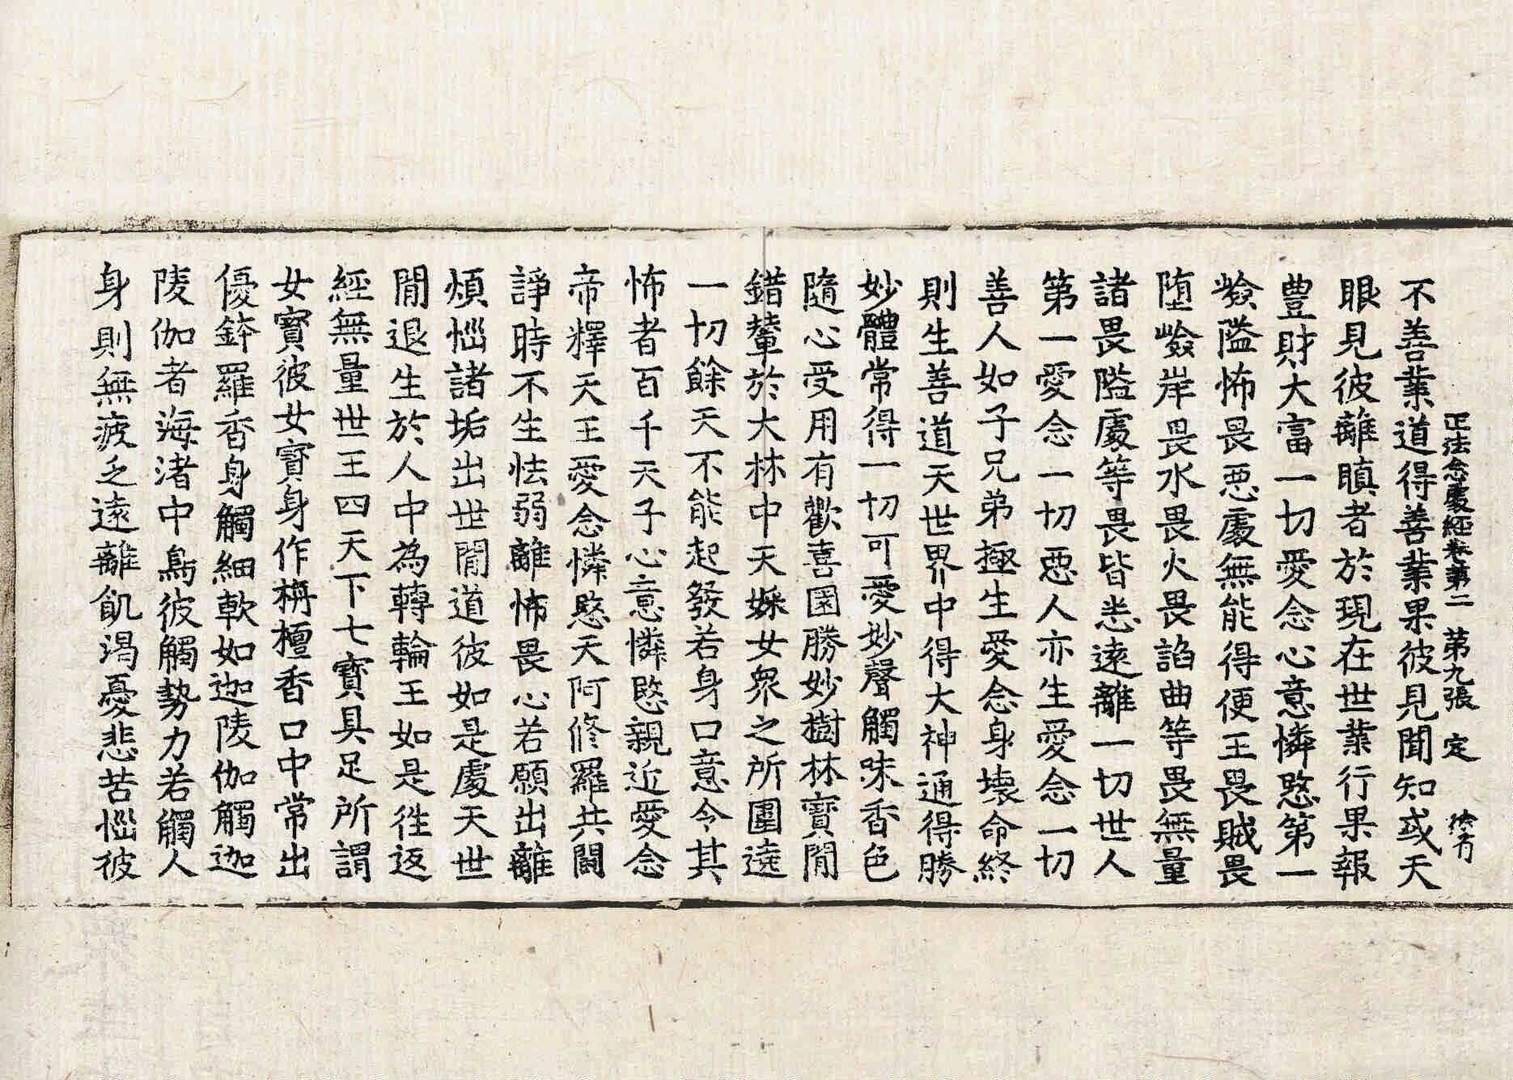 正法念處經卷第二 第九張 定
不善業道得善業果彼見聞知或天
眼見彼離瞋者於現在世業行果報
豊財大富一切愛念心意憐愍第一
嶮隘怖畏惡處無能得便王畏賊畏
堕嶮岸畏水畏火畏諂曲等畏無量
諸畏隘處等畏皆悉遠離一切世人
第一愛念一切惡人亦生愛念一切
善人如子兄弟極生愛念身壞命終
則生善道天世界中得大神通得勝
妙體常得一切可愛妙聲觸味香色
隨心受用有歡喜園勝妙樹林寶間
錯輦於大林中天婇女衆之所圍遶
一切餘天不能起發若身口意令其
怖者百千天子心意憐愍親近愛念
帝釋天王愛念憐愍天阿修羅共鬪
諍時不生怯弱離怖畏心若願出離
煩惱諸垢出世間道彼如是處天世
間退生於人中為轉輪王如是往返
經無量世王四天下七寶具足所謂
女寶彼女寶身作栴檀香口中常出
優鉢羅香身觸細軟如迦陵伽觸迦
陵伽者海渚中鳥彼觸勢力若觸人
身則無疲乏遠離飢渴憂悲苦惱彼